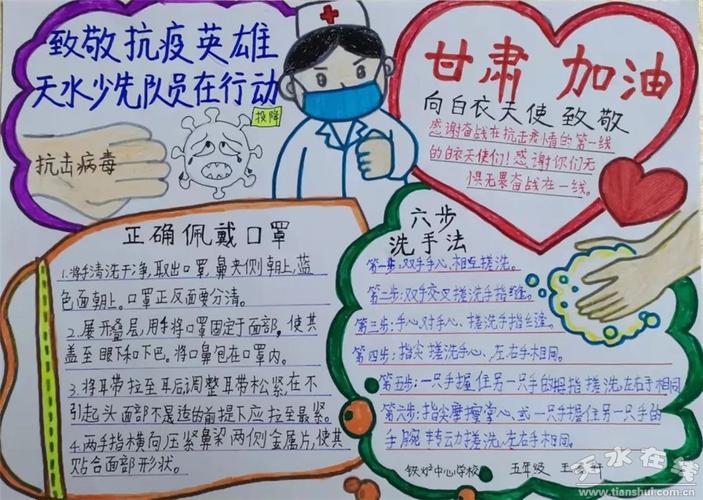 致敬抗疫英雄
天水少先队员在行动
投降
抗击病毒
甘肃 加油
向白衣天使致敬
感谢奋战在抗击疫情的第一线
的白衣天使们！感谢你们无
惧无畏奋战在一线。
正确佩戴口罩
1.将手清洗干净,取出口罩,鼻夹侧朝上,蓝
色面朝上。口罩正反面要分清。
2.展开叠层,用手将口罩固定于面部,使其
盖至眼下和下巴。将口鼻包在口罩内。
3.将耳带拉至耳后,调整耳带松紧,在不
引起头面部不适的前提下应拉至最紧。
4.两手指横向压紧鼻梁两侧金属片,使其
贴合面部形状。
六步
洗手法
第一步:双手手心,相互搓洗。
第二步:双手交叉搓洗手指缝。
第三步:手心对手心、搓洗手指缝。
第四步:指尖搓洗手心、左右手相同。
第五步:一只手握住另一只手的拇指搓洗,左右手相同
第六步:指尖摩擦掌心,或一只手握住另一只手的
手腕转动搓洗,左右手相同。
铁炉中心学校 五年级 王
天水在线
www.tianshui.com.cn